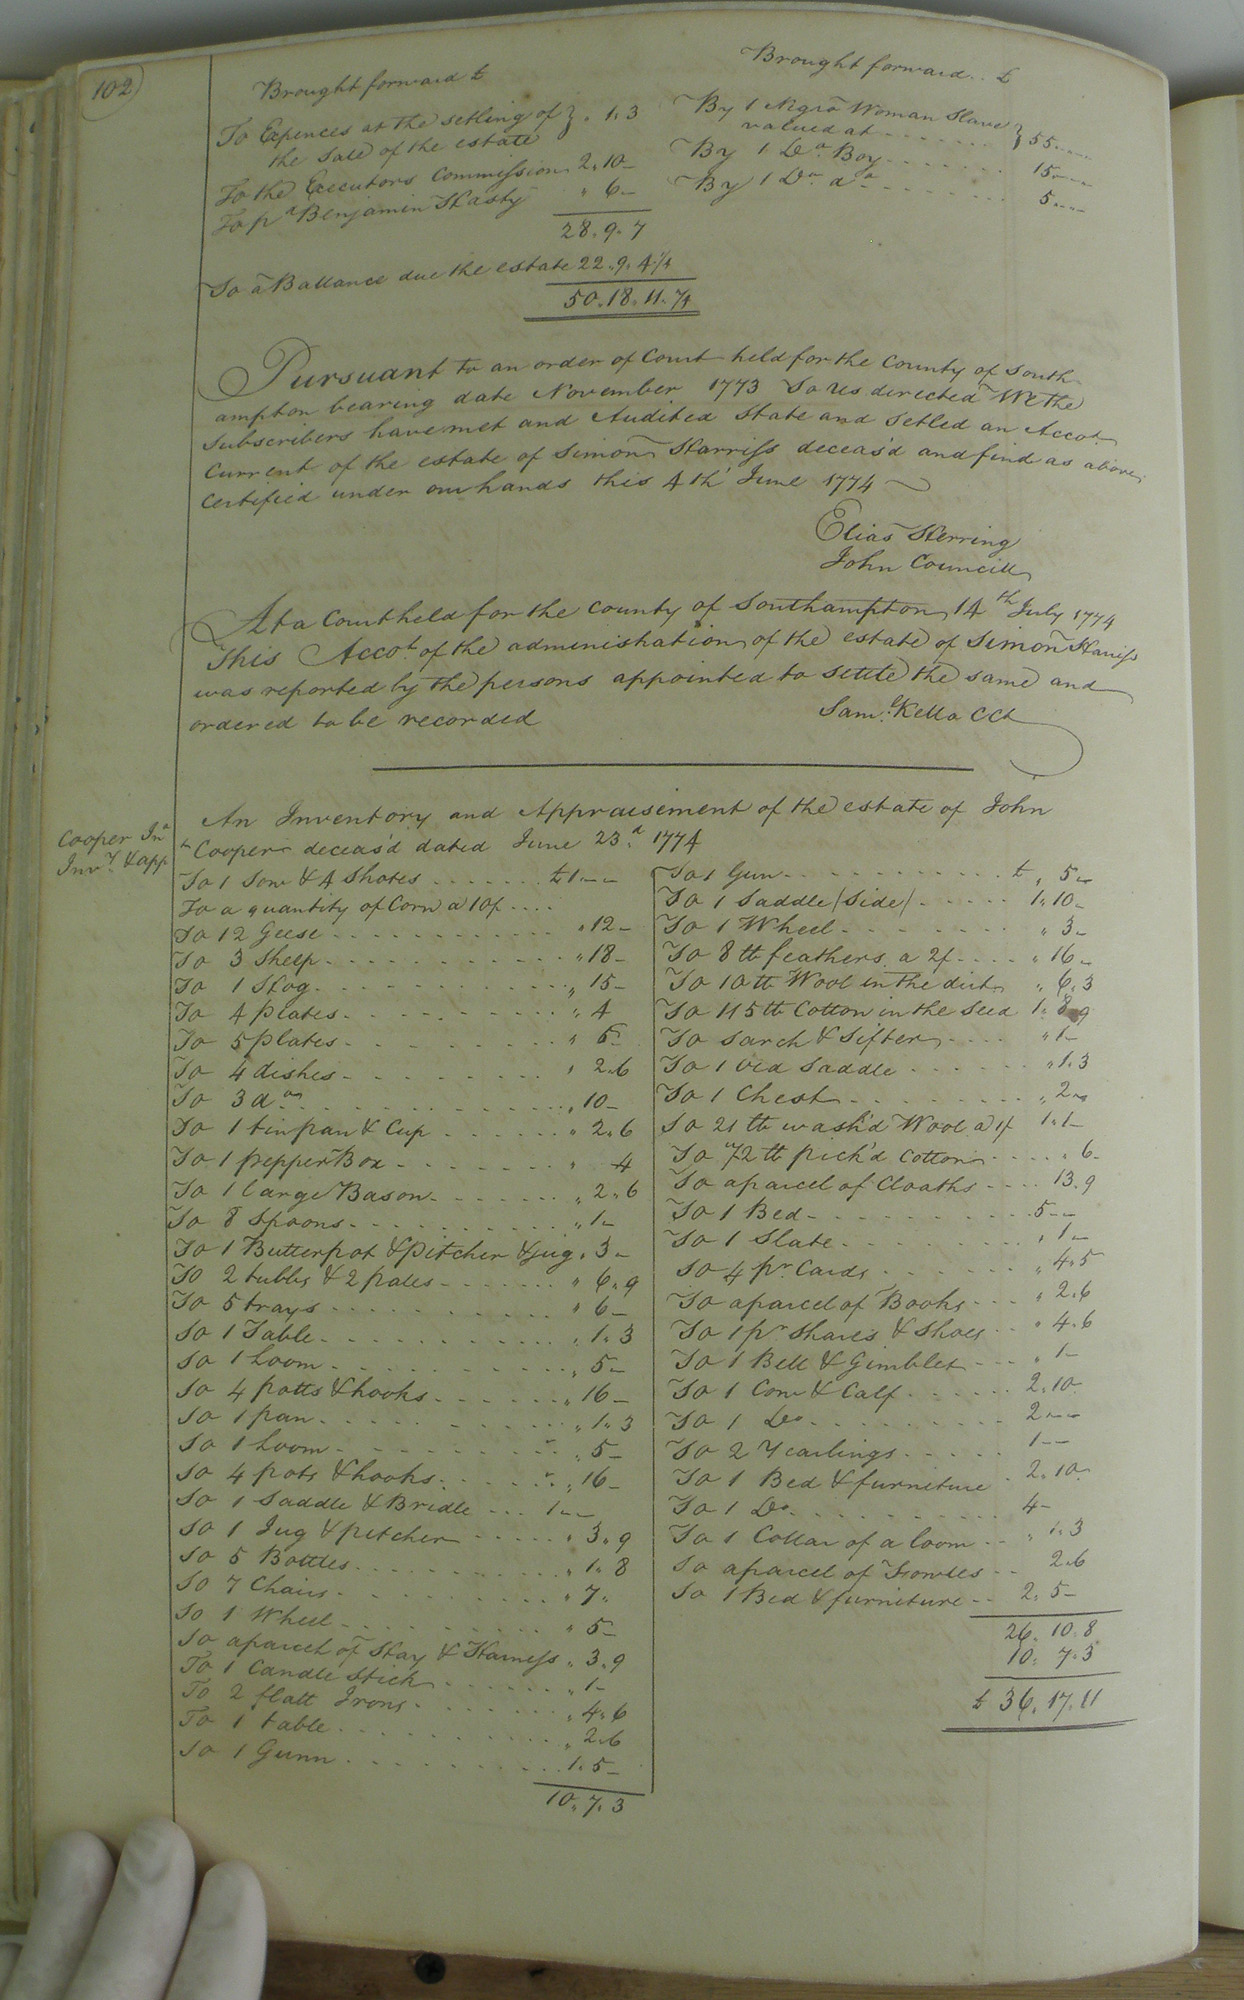 102
Brought forward £
To Expences at the setling of } . 1. 3
the Sale of the estate
To the Executors Commission 2. 10 –
To pd Benjamen Hasty " 6 –
28. 9. 7
To a Ballance due the estate 22. 9. 4 1/4
50. 18. 11. 1/4
Brought forward .. £
By 1 Negro Woman Slave }
valued at - - - - - - 55 - - -
By 1 Do. Boy - - - - - - 15 - - -
By 1 Do. do - - - - - - 5 - - -
Pursuant to an order of Court held for the County of South
ampton bearing date November 1773 To us directed We the
Subscribers have met and Audited State and Setled an Accot.
Current of the estate of Simon Harriss deceas'd and find as above,
Certified under our hands this 4th June 1774
Elias Herring
John Councill
At a Court held for the County of Southampton 14th July 1774
This Accot. of the administration of the estate of Simon Harriss
was reported by the persons appointed to settle the same and
ordered to be recorded
Saml. Kello CCt
Cooper Jno
Invy. & app
An Inventory and Appraisement of the estate of John
Cooper deceas'd dated June 23d. 1774
To 1 Sow & 4 Shotes . . . . . . . . £1 – –
To a quantity of Corn a 10/. . . . .
To 12 Geese - - - - - - - - - - " 12 –
To 3 Sheep - - - - - - - - - - " 18 –
To 1 Hog - - - - - - - - - - " 15 –
To 4 plates - - - - - - - - - " 4
To 5 plates - - - - - - - - - " 5 –
To 4 dishes - - - - - - - - - " 2. 6
To 3 do - - - - - - - - - - " 10 –
To 1 tinpan & Cup - - - - - - " 2. 6
To 1 pepper Box - - - - - - - " 4
To 1 large Bason - - - - - - - " 2. 6
To 8 Spoons - - - - - - - - - " 1 –
To 1 Butterpot & pitcher & jug " 3 –
To 2 tubbs & 2 pales - - - - - - " 6. 9
To 5 trays - - - - - - - - - - " 6 –
To 1 Table - - - - - - - - - - " 1. 3
To 1 Loom - - - - - - - - - - " 5 –
To 4 potts & hooks - - - - - - " 16 –
To 1 pan - - - - - - - - - - " 1. 3
To 1 Loom - - - - - - - - - " 5 –
To 4 pots & hooks - - - - - " 16 –
To 1 Saddle & Bridle - - - 1 – –
To 1 Jug & pitcher - - - - - " 3. 9
To 5 Bottles - - - - - - - - " 1. 8
To 7 Chairs - - - - - - - - " 7 "
To 1 Wheel - - - - - - - - " 5 –
To a parcel of Stay & Harness " 3. 9
To 1 Candle Stick - - - - - - " 1 –
To 2 flatt Irons - - - - - - - " 4. 6
To 1 table - - - - - - - - - " 2. 6
To 1 Gunn - - - - - - - - - 1. 5 –
10. 7. 3
To 1 Gun - - - - - - - - - - £ " 5 –
To 1 Saddle (Side) - - - - - - 1. 10 –
To 1 Wheel - - - - - - - - " 3 –
To 8 lb feathers a 2/. - - - " 16 –
To 10 lb Wool in the dirt " 6. 3
To 115 lb Cotton in the Seed 1. 8. 9
To Sarch & Sifter - - - - " 1 –
To 1 Old Saddle - - - - - - " 1. 3
To 1 Chest - - - - - - - - " 2 –
To 21 lb wash'd Wool a 1/ 1. 1 –
To 72 lb pick'd Cotton - - - " 6 –
To a parcel of Cloaths - - - - 13. 9
To 1 Bed - - - - - - - - - 5 – –
To 1 Slate - - - - - - - - " 1 –
To 4 pr. Cards - - - - - - " 4. 5
To a parcel of Books - - - " 2. 6
To 1 pr Shares & Shoes - - " 4. 6
To 1 Bell & Gimblet - - - " 1 –
To 1 Cow & Calf - - - - - - 2. 10
To 1 Do. - - - - - - - - - 2 – –
To 2 Yearlings - - - - - - 1 – –
To 1 Bed & furniture - 2. 10
To 1 Do. - - - - - - - - - 4 –
To 1 Collar of a loom - - " 1. 3
To a parcel of Fowles - - 2. 6
To 1 Bed & furniture - - 2. 5 –
26. 10. 8
10. 7. 3
£ 36. 17. 11